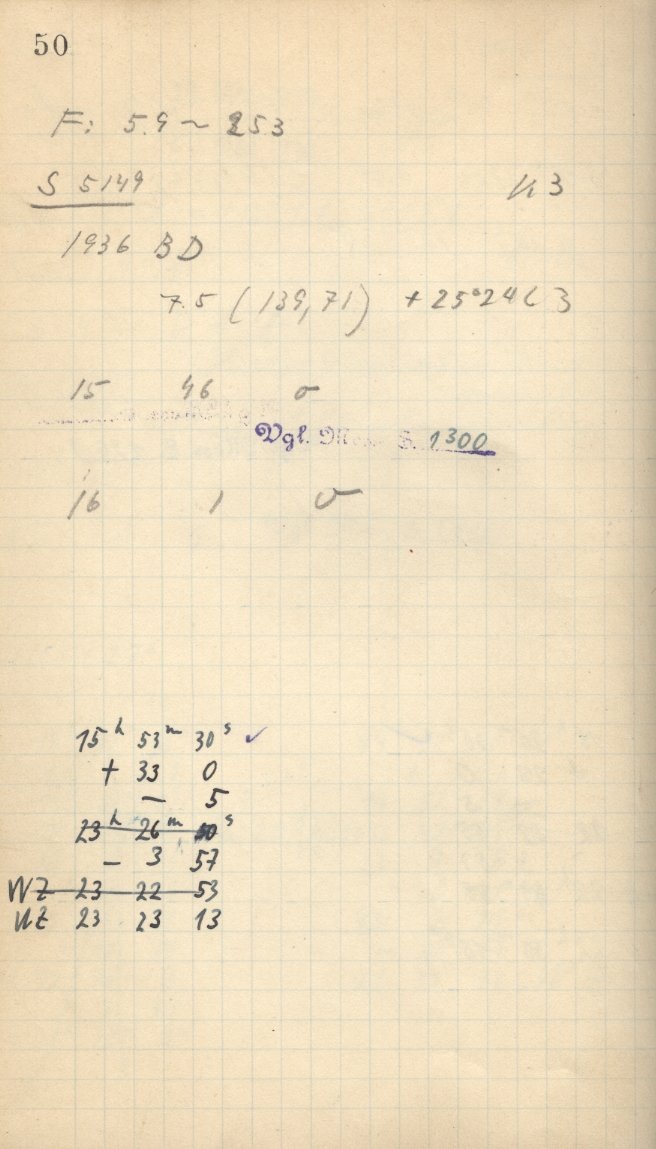 50
F: 5.9 ~ 253
S 5149 K 3
1936 BD
7.5 (139,71) +25°24
15 46 0
Vgl. S. 1300
16 1 0
15h 53m 30s ✓
+ 33 0
— 5
23h 26m s
— 3 57
WZ 23 22 53
WZ 23 23 13